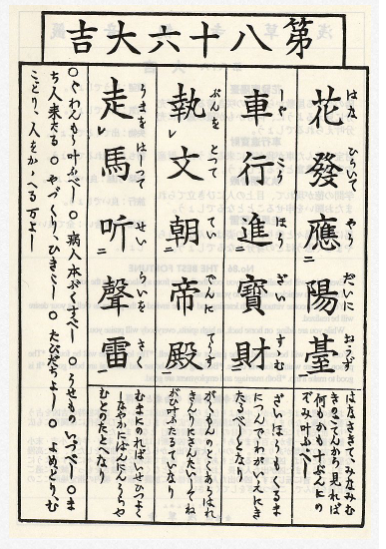 第八十六大吉
花發應陽臺
はなひらいてやうだいにおうず
はなさきて、みなみむ
きのごてんから見れば
何もかも十ぶんにの
ぞみ叶ふべし
車行進寳財
ざいほうもくるま
につんでわがいえにき
たるべしとなり
執文朝帝殿
ぶんをとつてていでんにてうす
がくもんのとくあらはれ
きんりにさんだいしてね
がひ叶ふたるていなり
走馬听聲雷
むまにのればいせひつよく
しなやかにはんにんうらや
むとのたとへなり
○ぐわんもう叶ふべし○病人本ぶくすべし○うせものいづべし○ま
ち人来たる○やづくりひきこし○たびだちよし○よめどり、む
ことり、人をかゝへる万よし